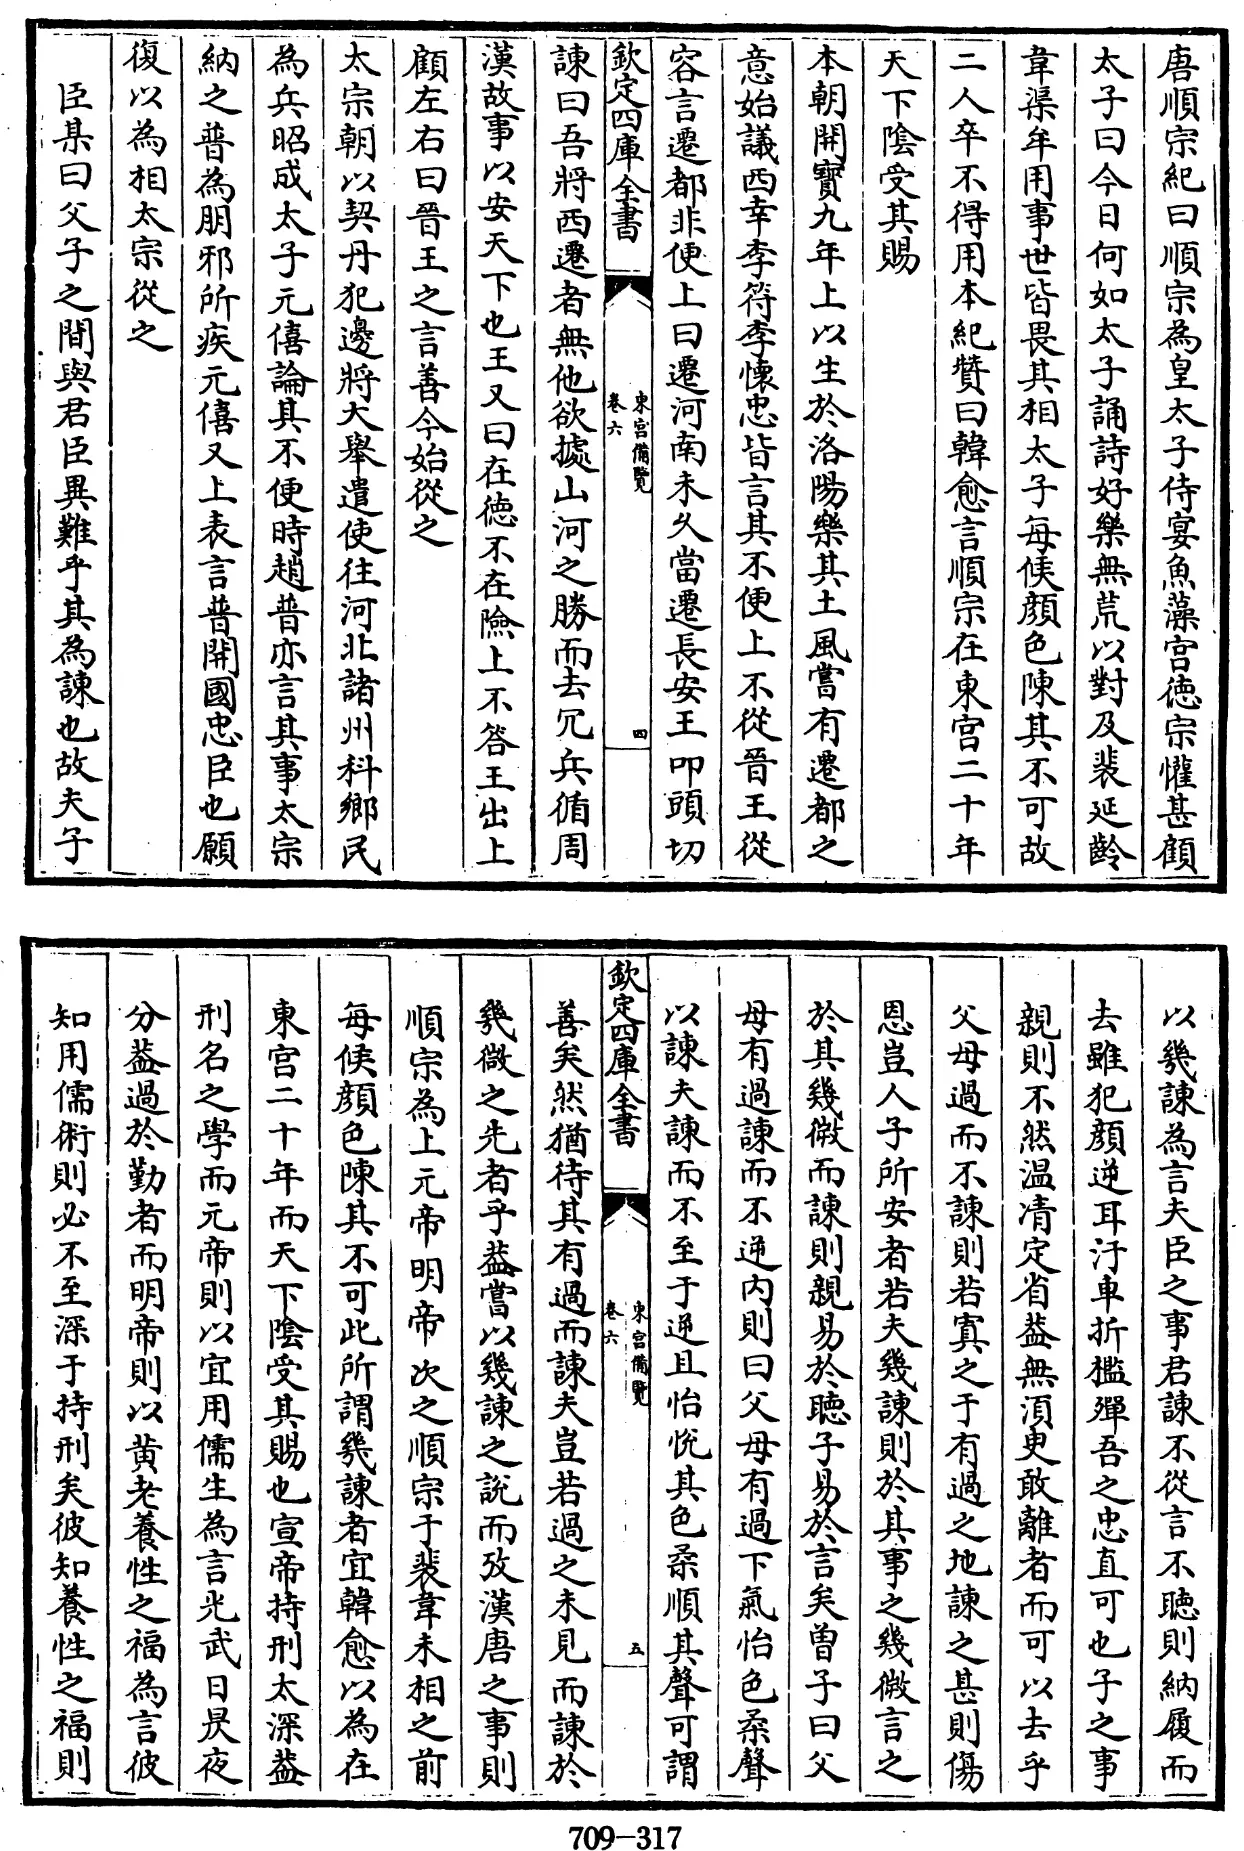 唐順宗紀曰順宗為皇太子侍宴魚藻宫徳宗懽甚顧
太子曰今日何如太子誦詩好樂無荒以對及裴延齡
韋渠牟用事世皆畏其相太子每候顔色陳其不可故
二人卒不得用本紀贊曰韓愈言順宗在東宫二十年
天下陰受其賜
本朝開寳九年上以生於洛陽樂其土風嘗有遷都之
意始議西幸李符李懐忠皆言其不便上不從晉王從
容言遷都非便上曰遷河南未久當遷長安王叩頭切
欽定四庫全書
東宫備覽
卷六
四
諫曰吾將西遷者無他欲據山河之勝而去冗兵循周
漢故事以安天下也王又曰在徳不在險上不答王出上
顧左右曰晉王之言善今始從之
太宗朝以契丹犯邊將大舉遣使往河北諸州科鄉民
為兵昭成太子元僖論其不便時趙普亦言其事太宗
納之普為朋邪所疾元僖又上表言普開國忠臣也願
復以為相太宗從之
臣某曰父子之間與君臣異難乎其為諫也故夫子
以㡬諫為言夫臣之事君諫不從言不聴則納履而
去雖犯顔逆耳汙車折檻殫吾之忠直可也子之事
親則不然温凊定省葢無湏臾敢離者而可以去乎
父母過而不諫則若寘之于有過之地諫之甚則傷
恩豈人子所安者若夫㡬諫則於其事之㡬微言之
於其㡬微而諫則親易於聴子易於言矣曽子曰父
母有過諫而不逆内則曰父母有過下氣怡色柔聲
以諫夫諫而不至于逆且怡恱其色柔順其聲可謂
欽定四庫全書
東宫備覽
卷六
五
善矣然猶待其有過而諫夫豈若過之未見而諫於
㡬微之先者乎葢嘗以㡬諫之説而攷漢唐之事則
順宗為上元帝明帝次之順宗于裴韋未相之前
每候顔色陳其不可此所謂㡬諫者宜韓愈以為在
東宫二十年而天下陰受其賜也宣帝持刑太深葢
刑名之學而元帝則以宜用儒生為言光武日昃夜
分葢過於勤者而明帝則以黄老養性之福為言彼
知用儒術則必不至深于持刑矣彼知養性之福則
709-317